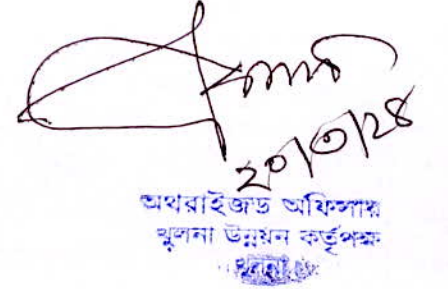 ২০/৩/২৪
অথরাইজড অফিসার
খুলনা উন্নয়ন কর্তৃপক্ষ
খুলনা।